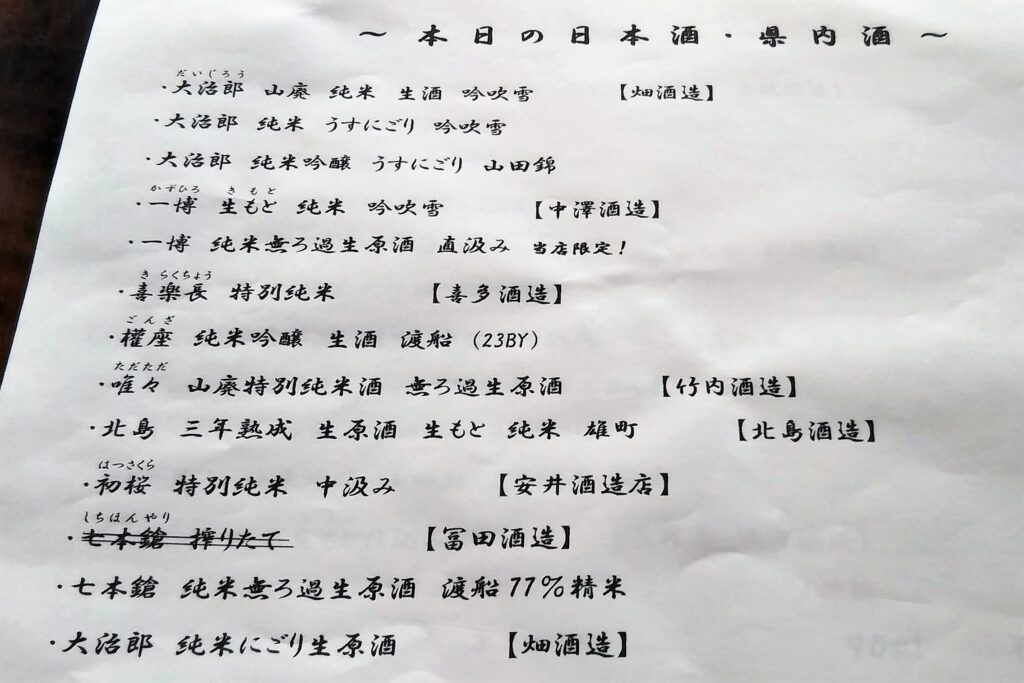 ～ 本日の日本酒・県内酒 ～
だいじろう
・大治郎 山廃 純米 生酒 吟吹雪 【畑酒造】
・大治郎 純米 うすにごり 吟吹雪
・大治郎 純米吟醸 うすにごり 山田錦
かずひろ きもと
・一博 生もと 純米 吟吹雪 【中澤酒造】
・一博 純米無ろ過生原酒 直汲み 当店限定！
きらくちょう
・喜楽長 特別純米 【喜多酒造】
ごんざ
・權座 純米吟醸 生酒 渡船 (23BY)
ただただ
・唯々 山廃特別純米酒 無ろ過生原酒 【竹内酒造】
・北島 三年熟成 生原酒 生もと 純米 雄町 【北島酒造】
はつさくら
・初桜 特別純米 中汲み 【安井酒造店】
しちほんやり
・七本鎗 搾りたて 【冨田酒造】
・七本鎗 純米無ろ過生原酒 渡船77％精米
・大治郎 純米にごり生原酒 【畑酒造】